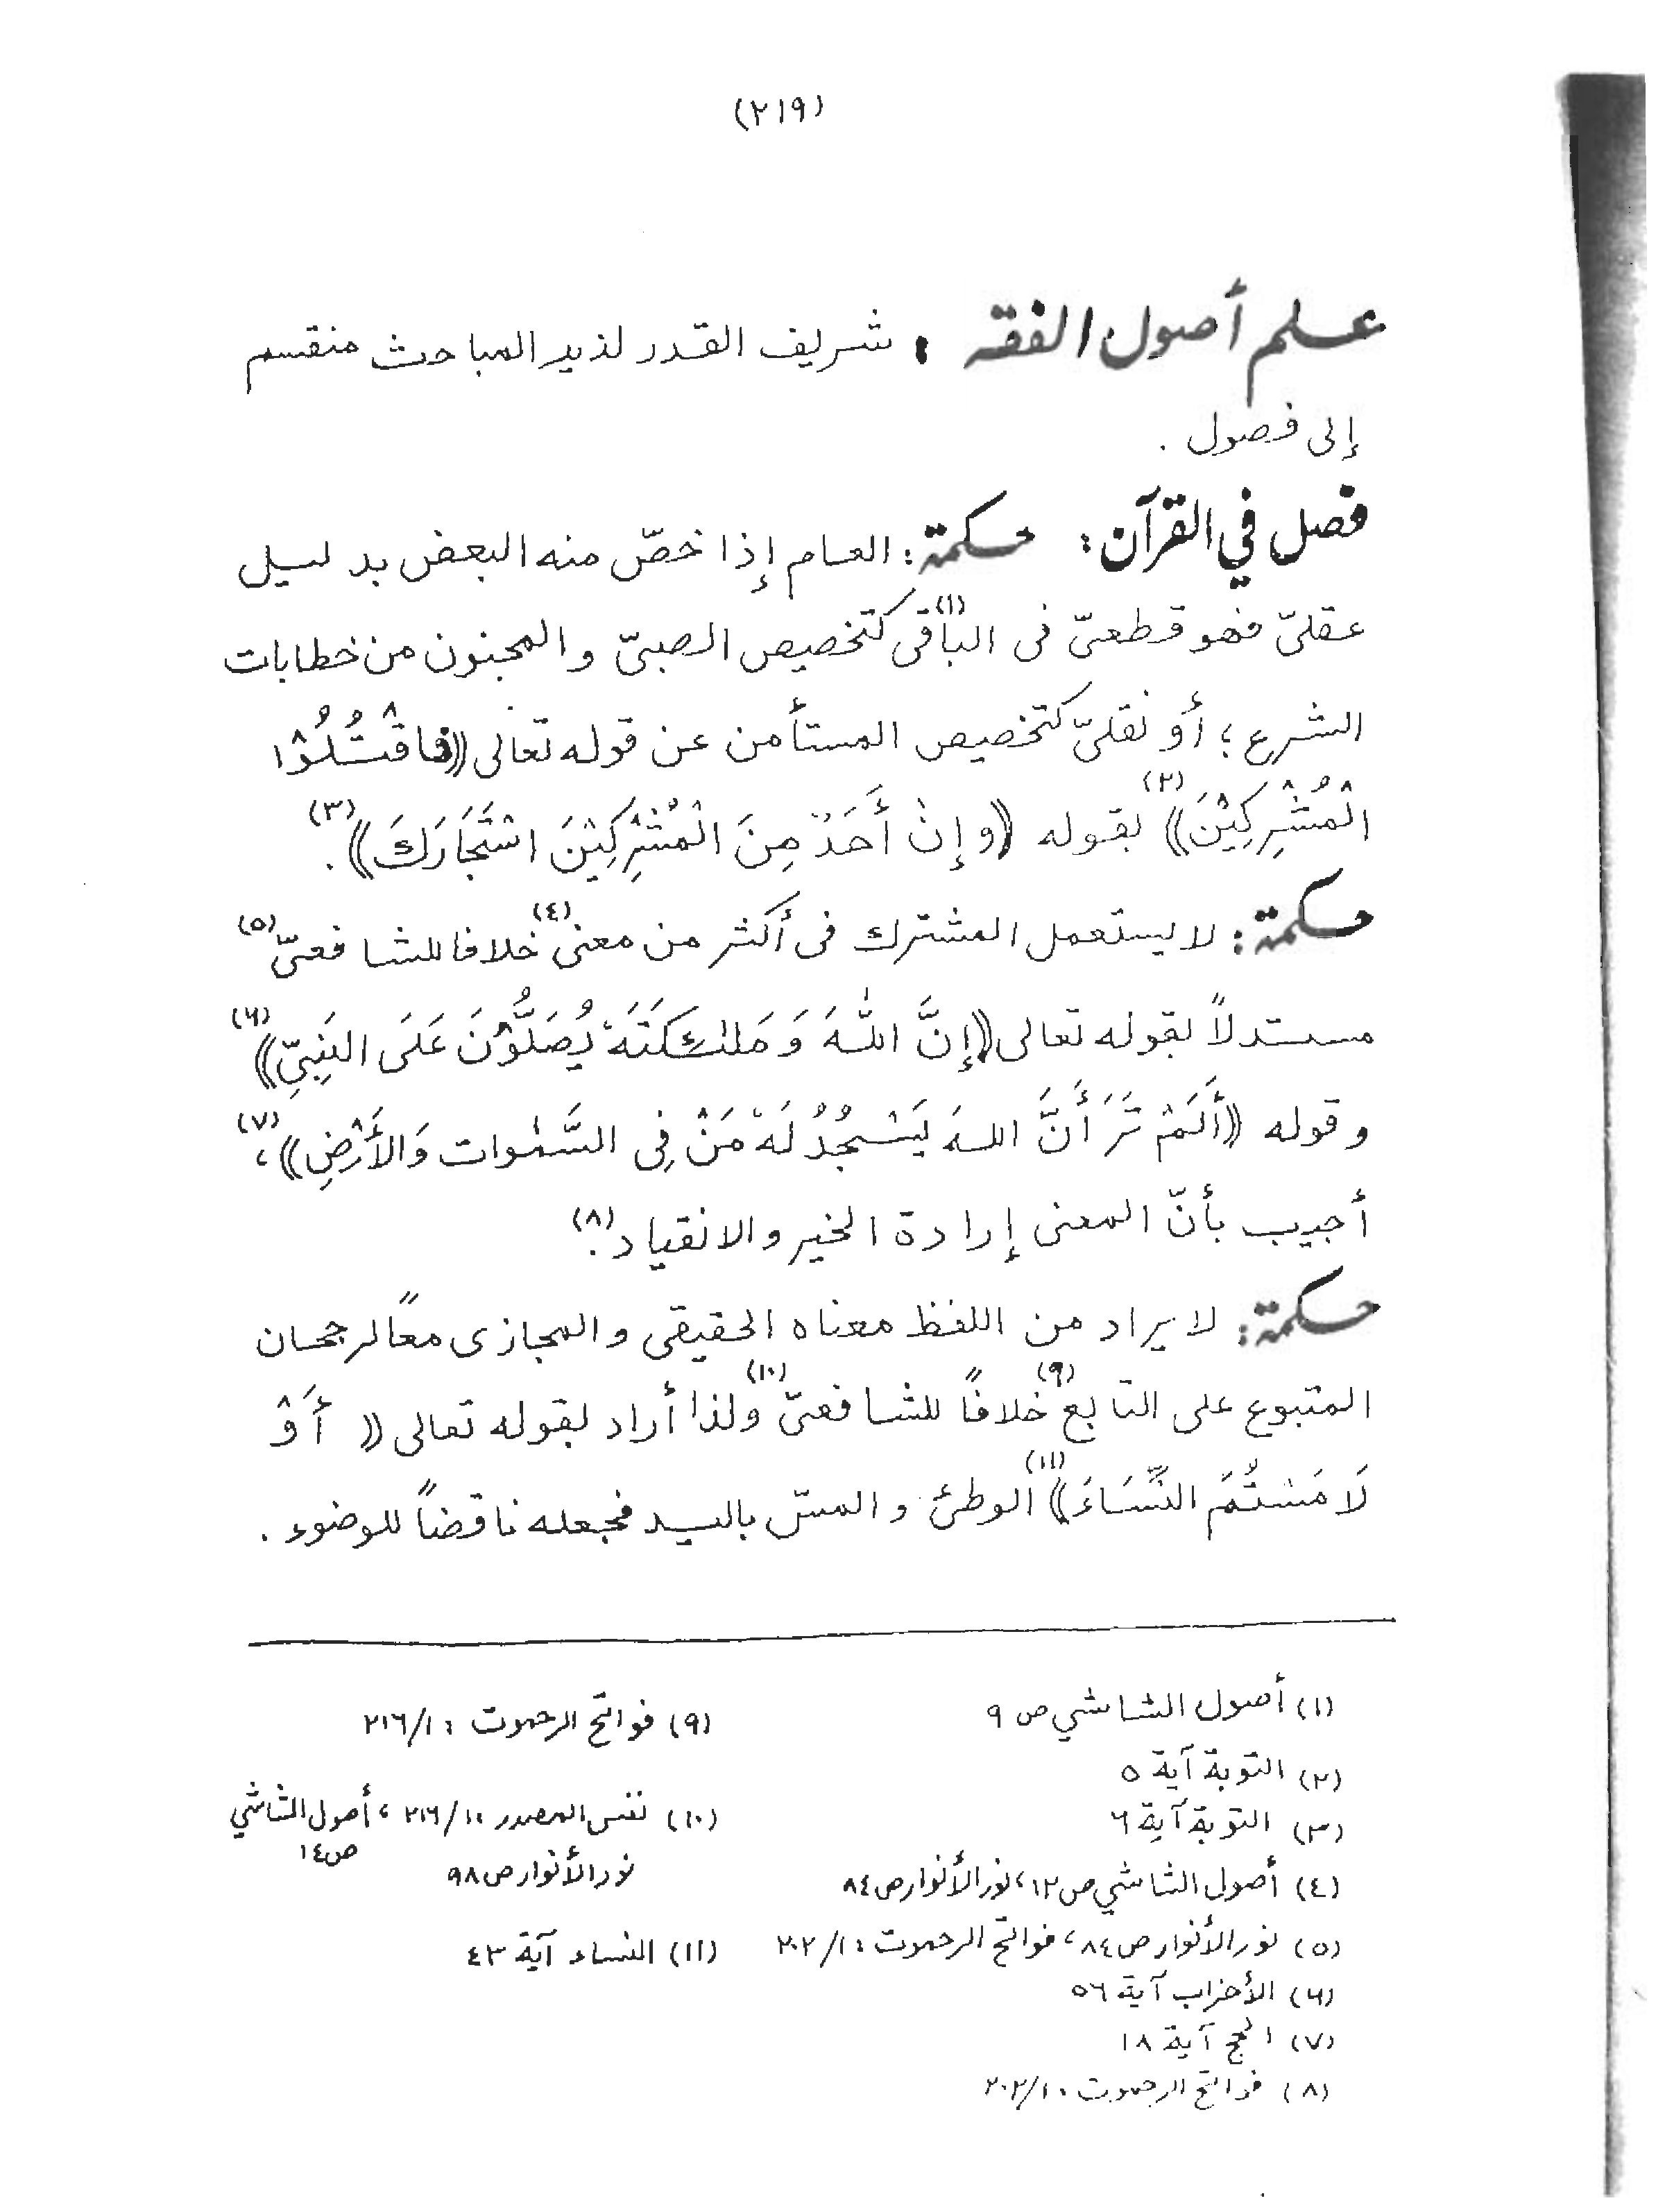 (٢١٩)
علم أصول الفقه : شريف القدر لذيذ المباحث منقسم
إلى فصول .
فصل في القرآن : حكمة : العام إذا خصّ منه البعض بدليل
عقليّ فهو قطعيّ فى الباقى(١) كتخصيص الصبيّ والمجنون من خطابات
الشرع ؛ أو نقليّ كتخصيص المستأمن عن قوله تعالى ((فَاقْتُلُوْا
الْمُشْرِكِيْنَ))(٢) بقوله ((وإِنْ أَحَدٌ مِنَ الْمُشْرِكِيْنَ اسْتَجَارَكَ))(٣) .
حكمة : لا يستعمل المشترك فى أكثر من معنى(٤) خلافا للشافعيّ(٥)
مستدلاً بقوله تعالى ((إِنَّ اللّٰهَ وَمَلٰئِكَتَهٗ يُصَلُّوْنَ عَلَى النَبِيِّ))(٦)
وقوله ((أَلَمْ تَرَ أَنَّ اللهَ يَسْجُدُ لَهٗ مَنْ فِى السَّمٰوات وَالأَرْضِ))(٧) ،
أجيب بأنّ المعنى إرادة الخير والانقياد(٨) .
حكمة : لا يراد من اللفظ معناه الحقيقى والمجازى معًا لرجحان
المتبوع على التابع(٩) خلافًا للشافعيّ(١٠) ولذا أراد بقوله تعالى (( أَوْ
لَامَسْتُمُ النِّسَاءَ))(١١) الوطئ والمسّ باليد فجعله ناقضاً للوضوء .
(١) أصول الشاشي ص ٩
(٢) التوبة آية ٥
(٣) التوبة آية ٦
(٤) أصول الشاشي ص ١٢ ، نور الأنوار ص ٨٤
(٥) نور الأنوار ص ٨٤ ، فواتح الرحموت : ١/٢٠٢
(٦) الأحزاب آية ٥٦
(٧) الحج آية ١٨
(٨) فواتح الرحموت : ١/٢٠٢
(٩) فواتح الرحموت : ١/٢١٦
(١٠) نفس المصدر : ١/٢١٦ ، أصول الشاشي
ص ١٤
نور الأنوار ص ٩٨
(١١) النساء آية ٤٣